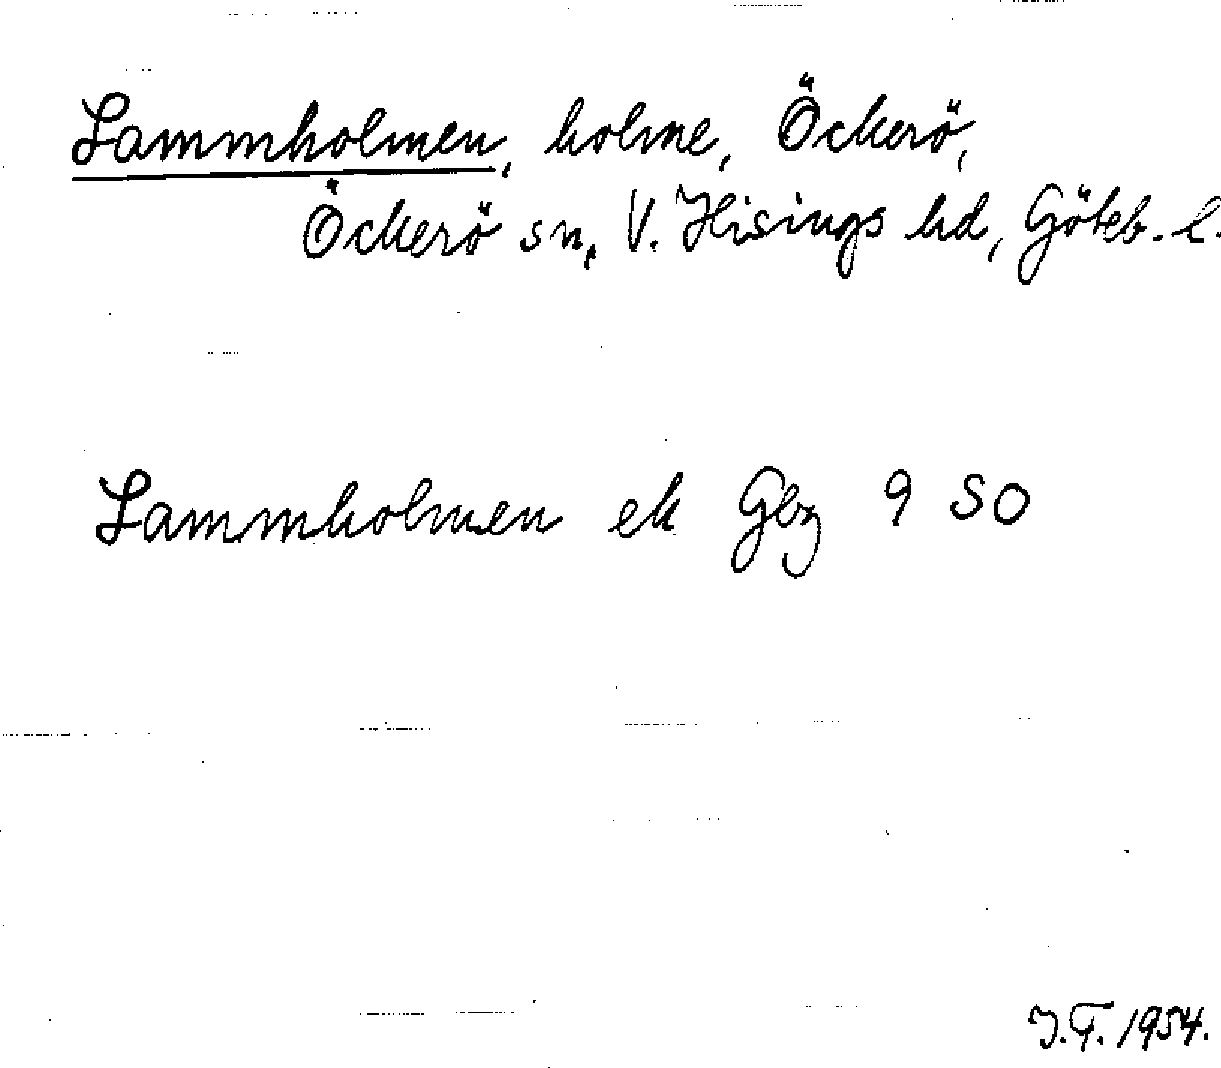 Lammholmen, holme, Öckerö,
Öckerö sn, V. Hisings hd, Göteb. l.
Lammholmen ek Gbg 9 SO
J.F. 1954.